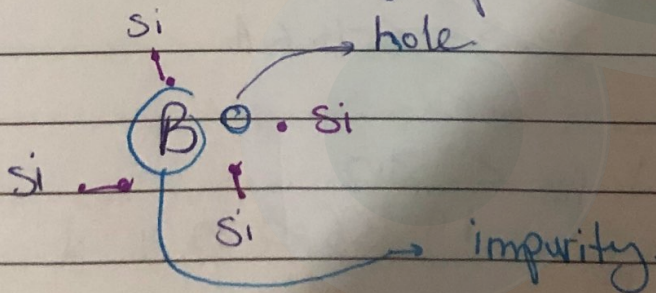 Si
hole
B
Si
Si
Si
impurity